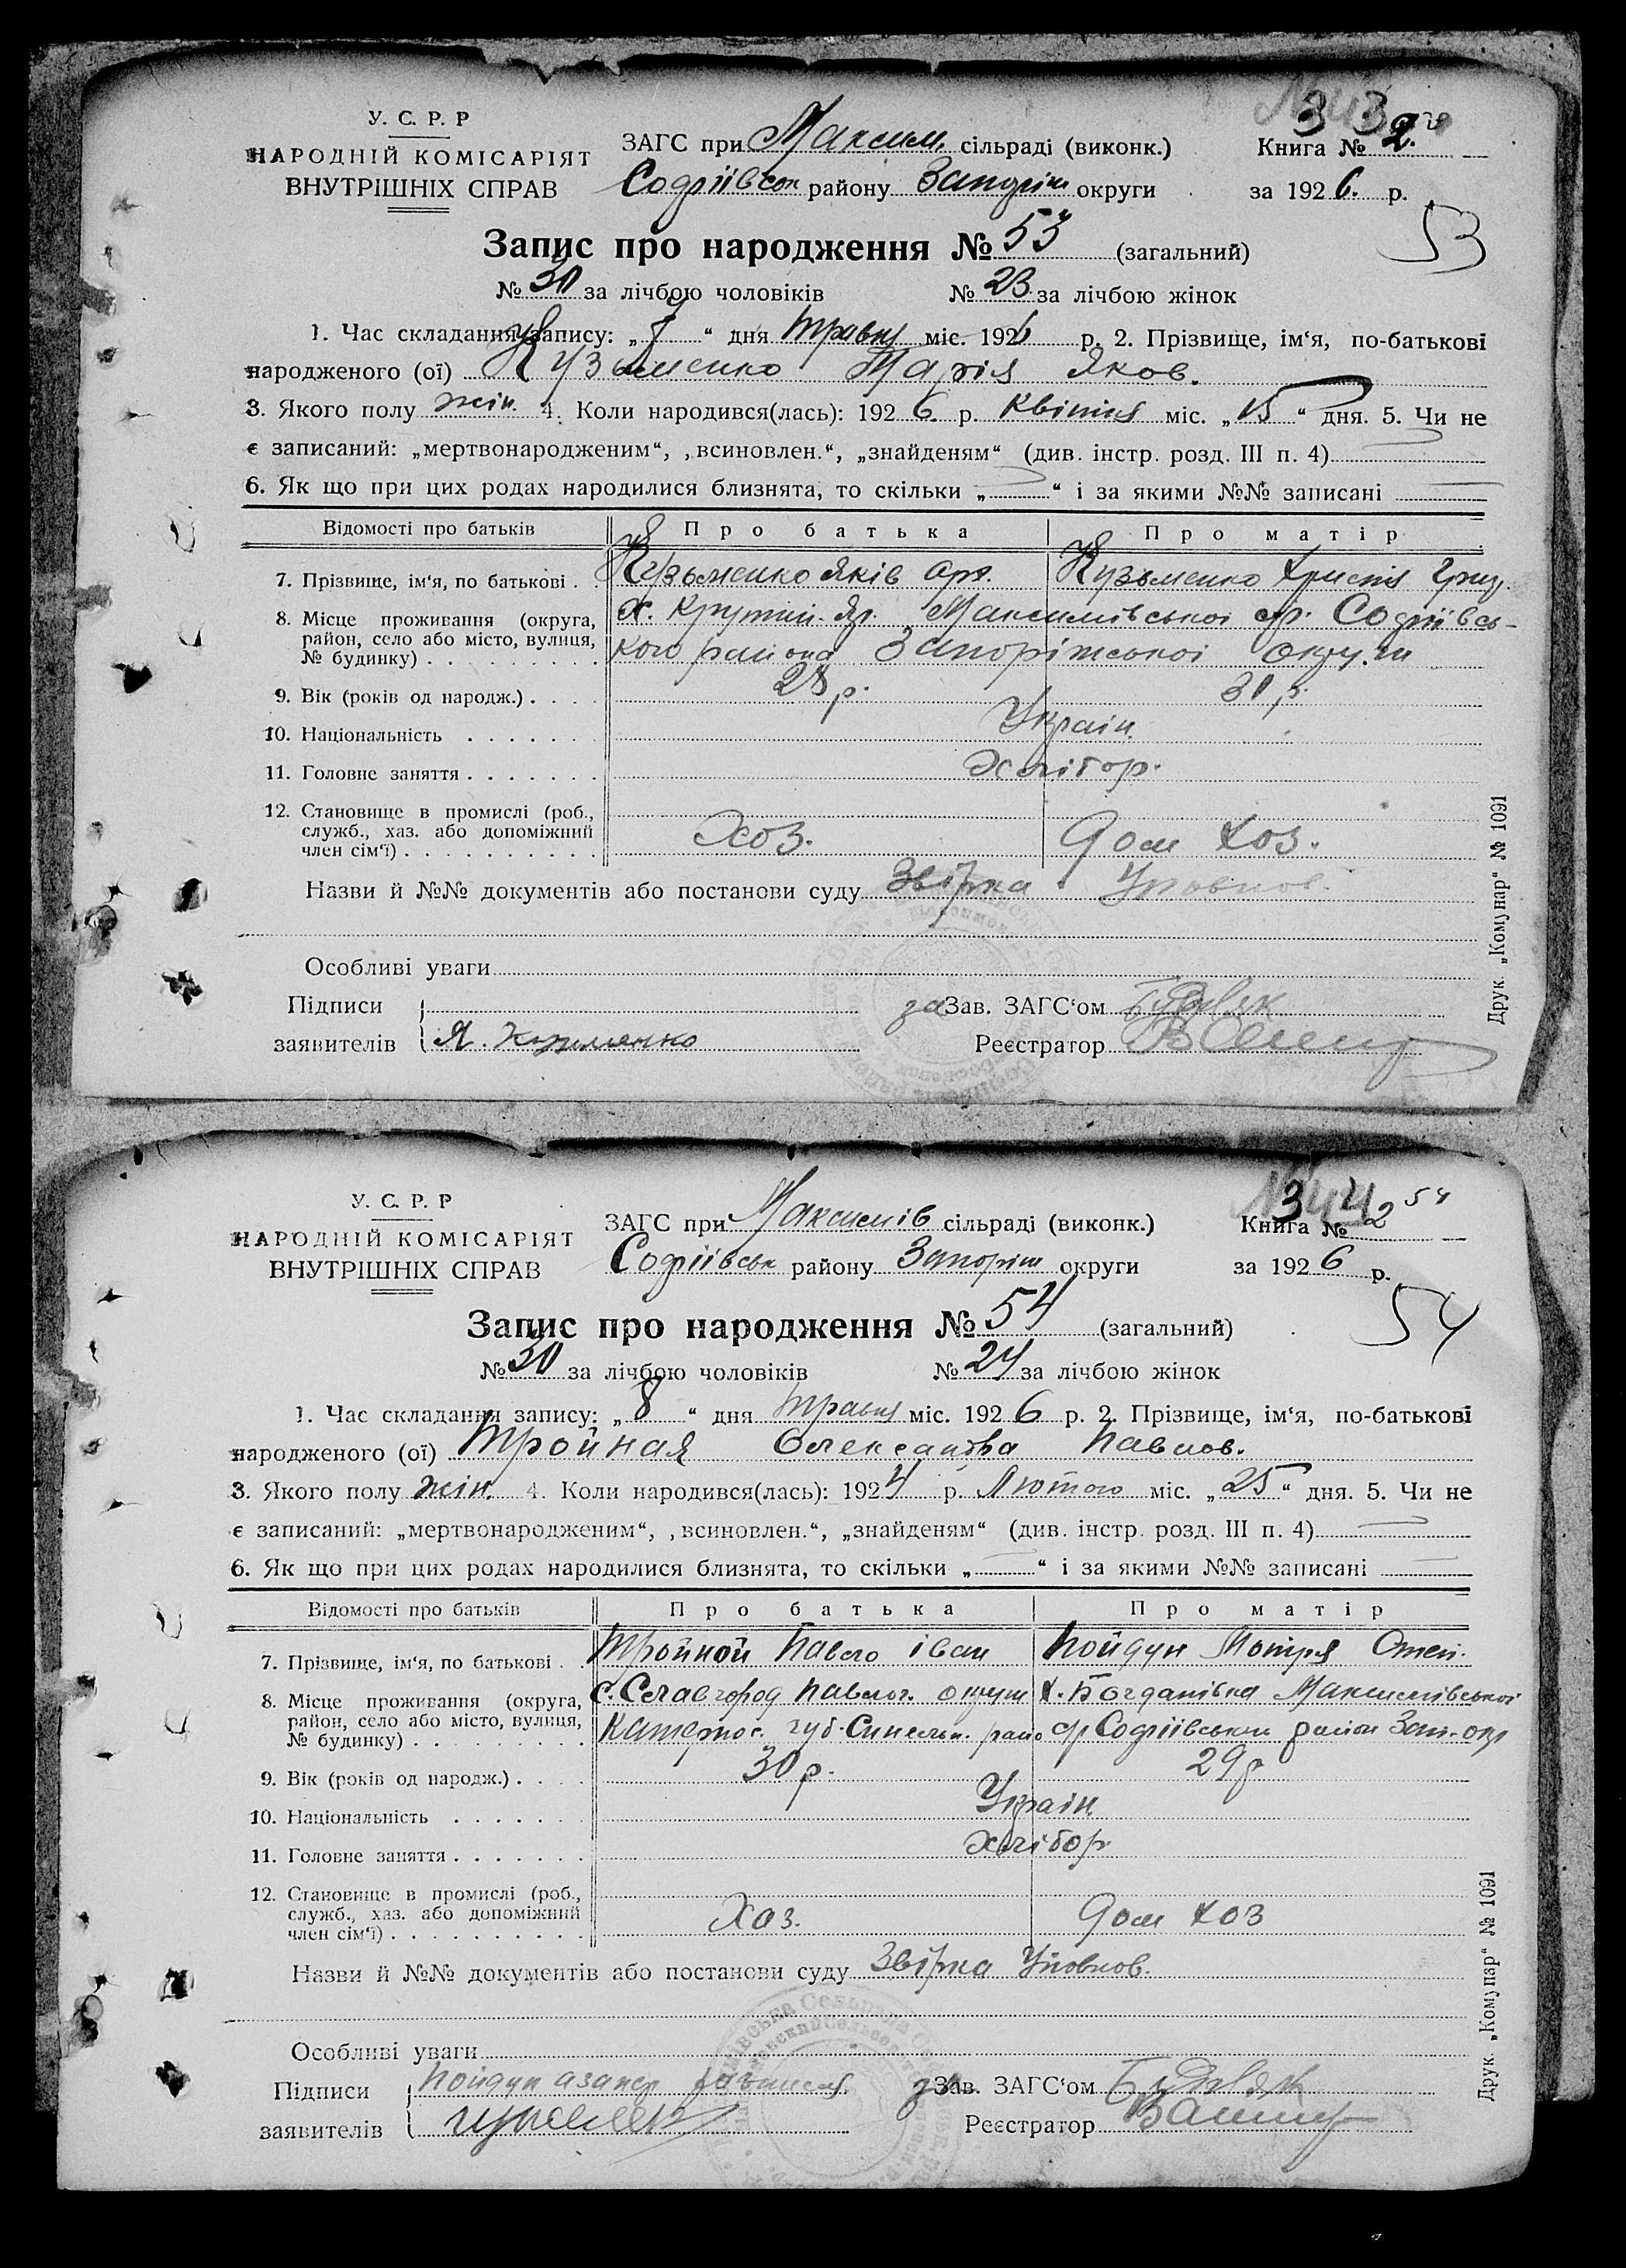 У. С. Р. Р
НАРОДНІЙ КОМІСАРІЯТ
ВНУТРІШНІХ СПРАВ
ЗАГС при Максим. сільраді (виконк.)
Софіївськ району Запоріж округи
Книга № 2.
за 1926. р.
53
Запис про народження № 53 (загальний)
№ 30 за лічбою чоловіків № 23 за лічбою жінок
1. Час складання запису: „7“ дня травня міс. 1926 р. 2. Прізвище, ім‘я, по-батькові
народженого (ої) Кузьменко Марія Яков.
3. Якого полу жін. 4. Коли народився(лась): 1926. р. Квітня міс. „15“ дня. 5. Чи не
є записаний: „мертвонародженим“, „всиновлен.“, „знайденям“ (див. інстр. розд. III п. 4)
6. Як що при цих родах народилися близнята, то скільки „ “ і за якими №№ записані
Відомості про батьків Про батька Про матір
7. Прізвище, ім‘я, по батькові . . Кузьменко Яків Кузьменко Христя Григ.
8. Місце проживання (округа, х. Крутий-Яр. Максимівської с/р. Софіївсь-
район, село або місто, вулиця,
№ будинку) . . . . . . . . . кого района Запоріжської округи
9. Вік (років од народж.) . . . . 28 р. 31 р.
10. Національність . . . . . . . Україн.
11. Головне заняття . . . . . . . Хлібор.
12. Становище в промислі (роб.,
служб., хаз. або допоміжний
член сім‘ї) . . . . . . . . . . Хоз. Дом хоз.
Назви й №№ документів або постанови суду Звірка Уповнов.
Особливі уваги
Підписи за Зав. ЗАГС‘ом
заявителів Я. Кузьменко Реєстратор
Друк. „Комунар“ № 1091
У. С. Р. Р
НАРОДНІЙ КОМІСАРІЯТ
ВНУТРІШНІХ СПРАВ
ЗАГС при Максимів сільраді (виконк.)
Софіївськ району Запоріж округи
Книга № 2 54
за 1926 р.
54
Запис про народження № 54 (загальний)
№ 30 за лічбою чоловіків № 24 за лічбою жінок
1. Час складання запису: „8“ дня травня міс. 1926 р. 2. Прізвище, ім‘я, по-батькові
народженого (ої) Тройная Олександра Павлов.
3. Якого полу жін. 4. Коли народився(лась): 1924 р. Лютого міс. „25“ дня. 5. Чи не
є записаний: „мертвонародженим“, „всиновлен.“, „знайденям“ (див. інстр. розд. III п. 4)
6. Як що при цих родах народилися близнята, то скільки „ “ і за якими №№ записані
Відомості про батьків Про батька Про матір
7. Прізвище, ім‘я, по батькові . . Тройной Павло Іван Пойдун Мотря Степ.
8. Місце проживання (округа, с. Славгород Павлог. округи х. Богданівка Максимівської
район, село або місто, вулиця,
№ будинку) . . . . . . . . . Катернос. губ. Синельн. райо с/р Софіївськи район Зап. окр
9. Вік (років од народж.) . . . . 30 р. 29 р
10. Національність . . . . . . . Україн
11. Головне заняття . . . . . . . Хлібор
12. Становище в промислі (роб.,
служб., хаз. або допоміжний
член сім‘ї) . . . . . . . . . . Хаз. Дом хоз
Назви й №№ документів або постанови суду Звірка Уповнов.
Особливі уваги
Підписи Пойдун за Зав. ЗАГС‘ом
заявителів Реєстратор
Друк. „Комунар“ № 1091